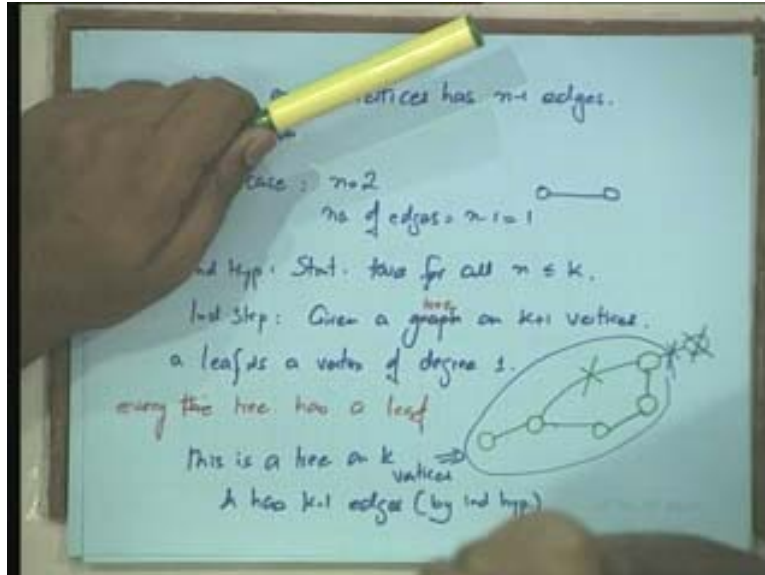 vertices has n-1 edges.
case : n=2
no of edges = n-1 = 1
Ind Hyp: Stat. true for all n ≤ k.
tree
Ind Step: Given a graph on k+1 vertices.
a leaf is a vertex of degree 1.
every the tree has a leaf
This is a tree on k vertices ⇒
has k-1 edges (by ind hyp)